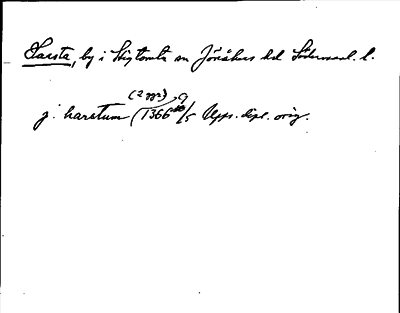 Harsta, by i Stigtomta sn Jönåkers hd Södermanl. l.
(2 ggr)
j. harstum (1366 /5 Upps. dipl. orig.